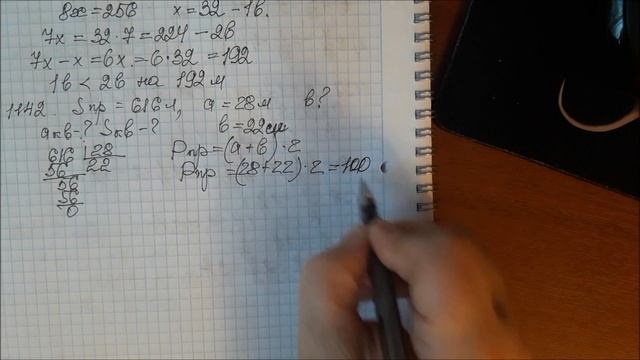 8x = 256 x = 32 - 1в.
7x = 32 · 7 = 224 - 2в
7x - x = 6x = 6 · 32 = 192
1в < 2в на 192 м
1142. Sпр = 616 м, a = 28 м в?
aкв-? Sкв-? в = 22 см
616 | 28 Pпр = (a + в) · 2
56 22 Pпр = (28 + 22) · 2 = 100
56
56
0